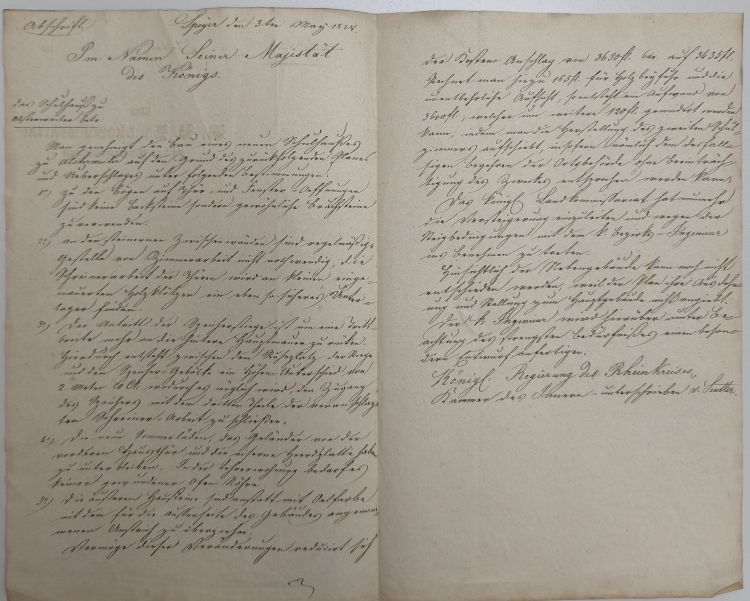 Abschrift.
Speyer den 3ten May 18
Im Namen Seiner Majestät
des Königs.
das Schulhaus zu
betr.
Man genehmigt den Bau eines neuen Schulhauses
zu auf den Grund des zurückfolgenden Planes
und Ueberschlages unter folgenden Bestimmungen.
1.) Zu den Bögen auf Thür- und Fenster-Oeffnungen
sind keine Backsteine sondern gewöhnliche Bruchsteine
zu verwenden.
2.) An den steinernen Zwischenwänden sind regelmäßige
Gestelle von Zimmerarbeit nicht nothwendig, die
Schreinerarbeit der Thüren wird an kleinen einge-
mauerten Holzklötzen ein eben so sicheres Unter-
lager finden.
3.) Der Antritt der Speicherstiege ist um eine Tritt-
breite mehr an die hintere Hauptmauer zu rücken.
Hierdurch entsteht zwischen dem Ruheplatz der Stiege
und dem Speicher-Gebälke ein Höhen-Unterschied von
2 Meter wodurch es möglich wird den Zugang
des Speichers mit dem dritten Theile der veranschlag-
ten Schreiner-Arbeit zu schließen.
4.) Die neuen Sommerläden, das Geländer vor der
vorderen Hausthür und die eiserne Heerdplatte haben
zu unterbleiben. In der Lehrerwohnung bedarf es
keiner gewundener Ofen Röhre.
5.) Die äußeren Hausteine sind anstatt mit Oelfarbe
mit dem für die Außenseite des Gebäudes angenom-
menen Anstrich zu überziehen.
Vermöge dieser Veränderungen reducirt sich
der Kosten Anschlag von 3650 fl. auf 3435 fl.
Rechnet man hiezu 165 fl. für Holz Beyfuhr und die
unentbehrliche Aufsicht, so entsteht ein Aufwand von
3600 fl., welcher um weitere 120 fl. gemindert werden
kann, indem man die Herstellung des zweiten Schul-
zimmers aufschiebt, insofern nämlich dem desfall-
sigen Begehren der Ortsbehörde ohne Beeinträch-
tigung des Zweckes entsprochen werden kann.
Das Königl. Landkommissariat hat nunmehr
die Versteigerung einzuleiten und wegen der
Steigbedingungen mit dem k. Bezirks-Ingenieur
ins Benehmen zu treten.
Hinsichtlich der Nebengebäude kann noch nicht
entschieden werden, weil der Plan ihre Ausdehn-
ung und Stellung zum Hauptgebäude nicht angiebt.
Der k. Ingenieur wird hierüber unter Be-
achtung des strengsten Bedürfnißes einen beson-
dern Entwurf anfertigen.
Königl. Regierung des Rheinkreises,
Kammer des Innern - unterschrieben v. Stutter.